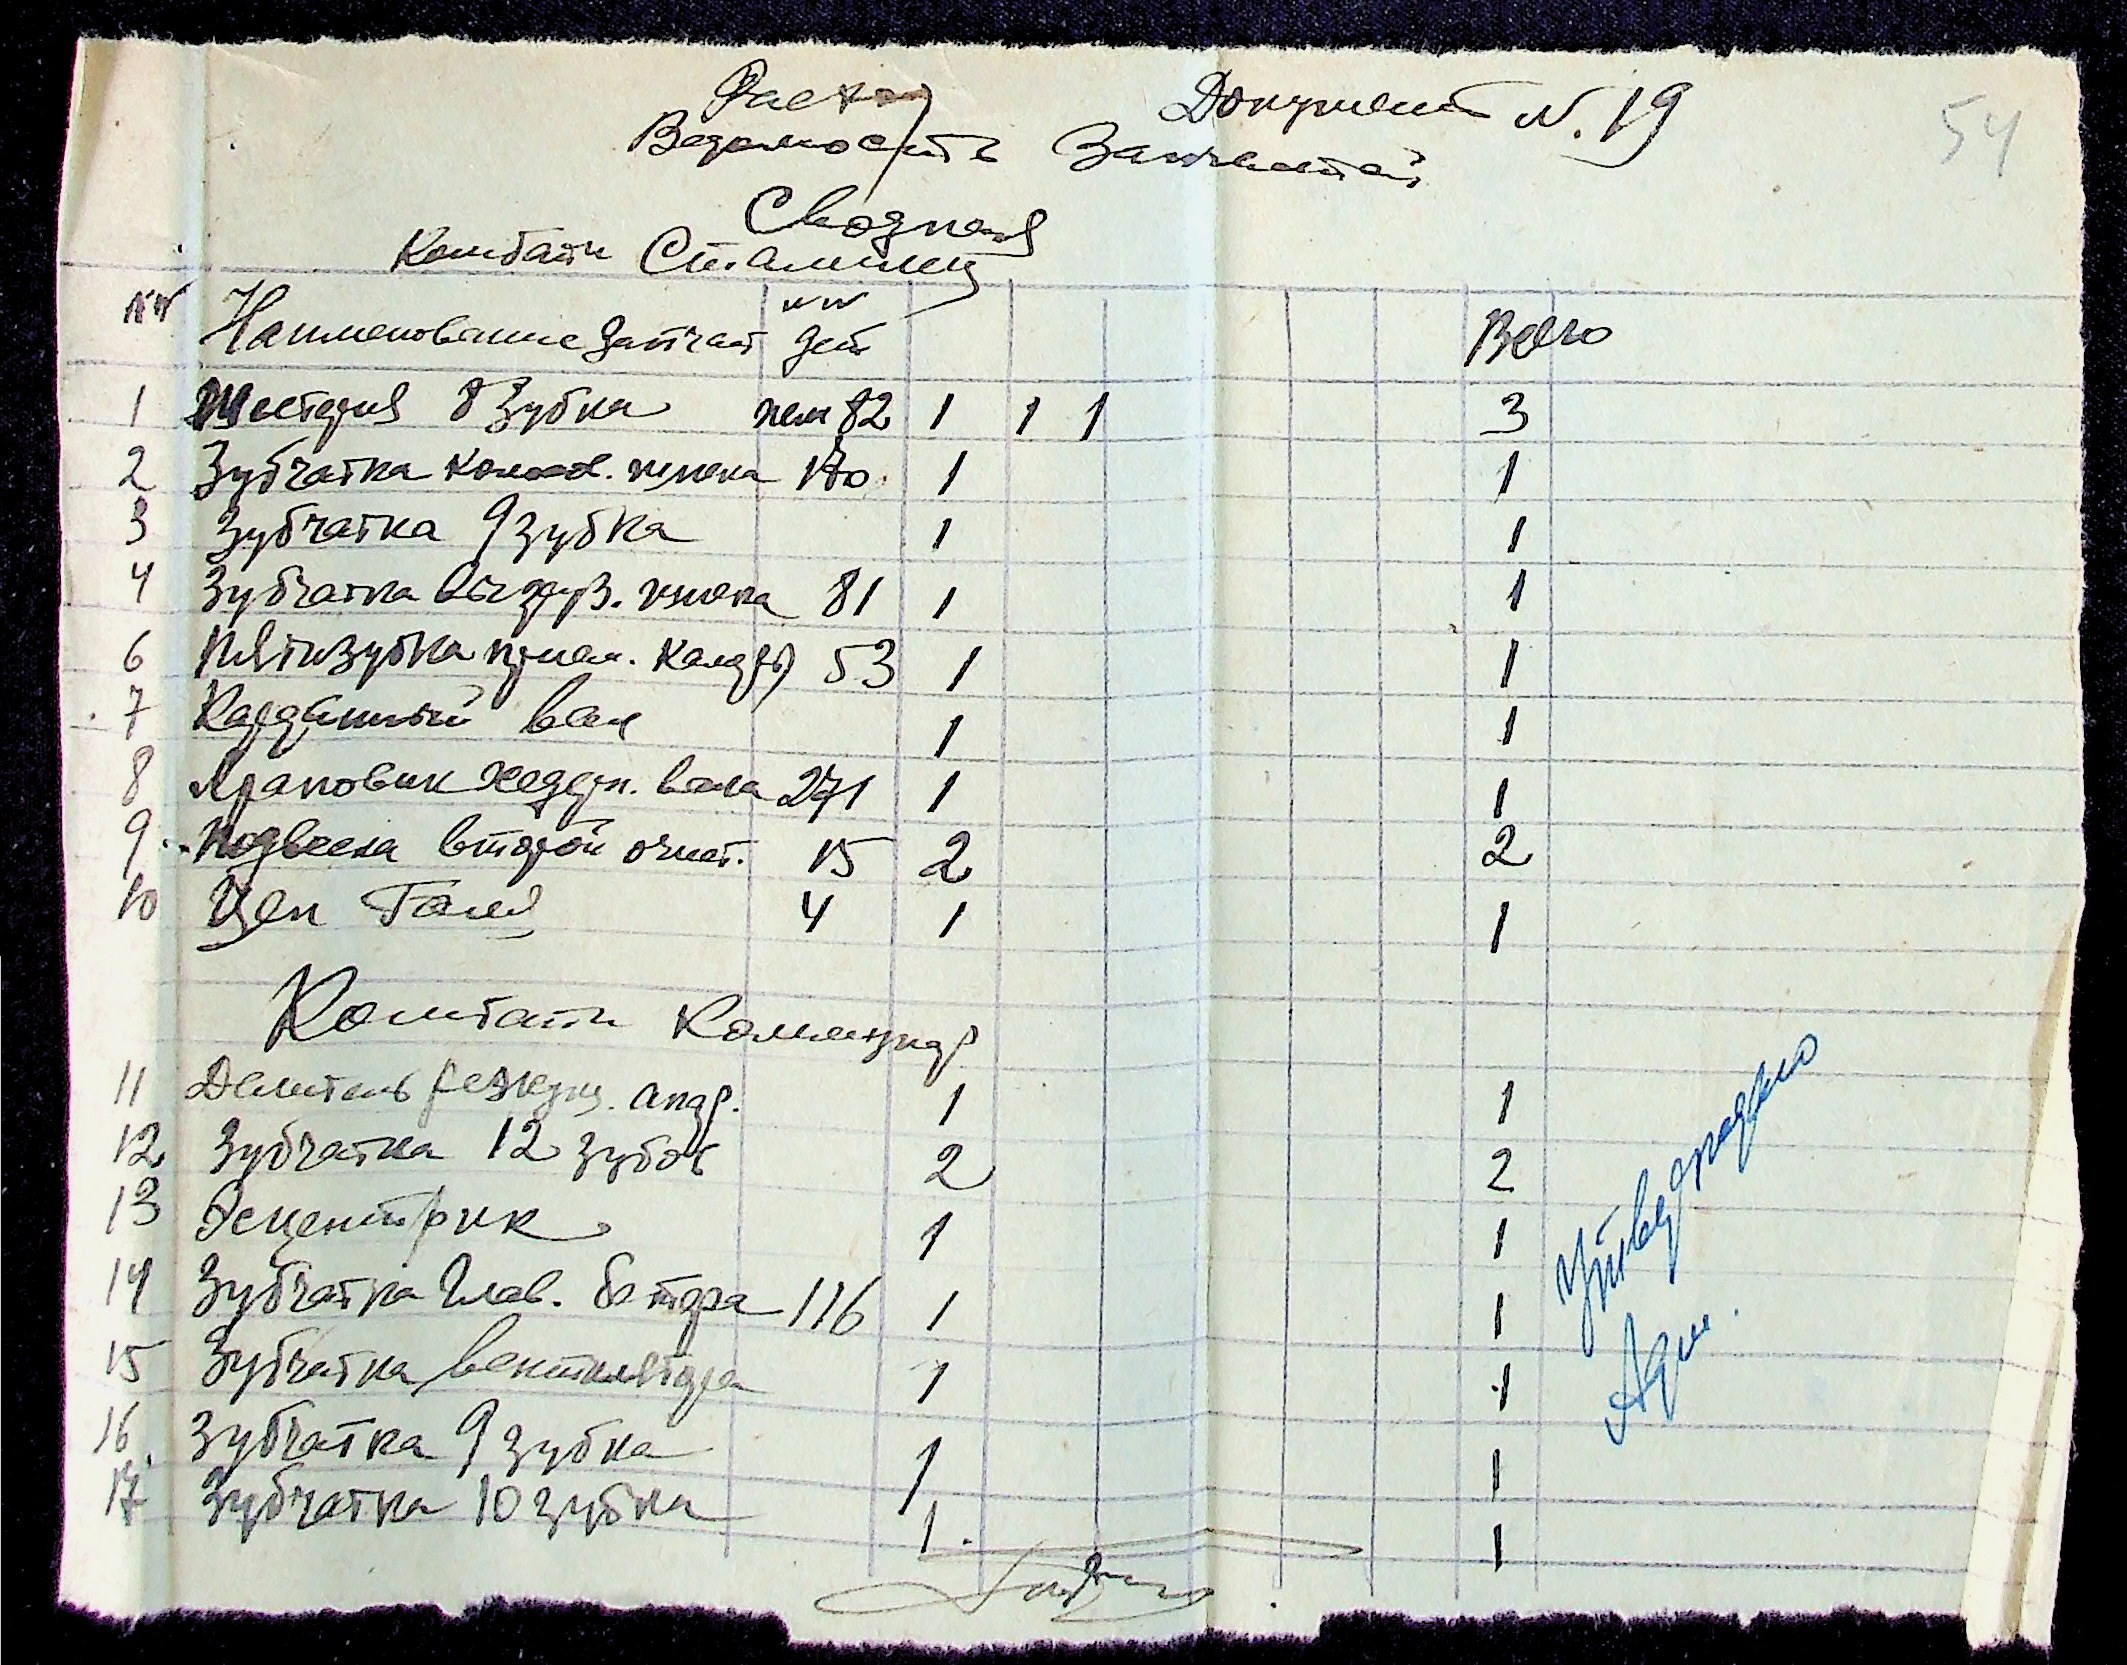 Расход Документ N. 19
54
Ведомость Запчастей
Сводная
Комбайн Сталинец
NN Наименование запчаст NN дет Всего
1 Шестерня 8 Зубка нем 82 1 1 1 3
2 Зубчатка колосов. шнека 170 1 1
3 Зубчатка 9 зубка 1 1
4 Зубчатка выгруз. шнека 81 1 1
6 Пятизубка прием. камеры 53 1 1
7 Карданный вал 1 1
8 Храповик карден. вала 271 1 1
9 Подвеска второй очист. 15 2 2
10 Цеп Галя 4 1 1
Комбайн Коммунар
11 Делитель режущ. апар. 1 1
12 Зубчатка 12 зубов 2 2
13 Эксцентрик 1 1
14 Зубчатка Глав. битера 116 1 1
15 Зубчатка вентилятора 1 1
16 Зубчатка 9 зубка 1 1
17 Зубчатка 10 зубка 1. 1
Утверждено